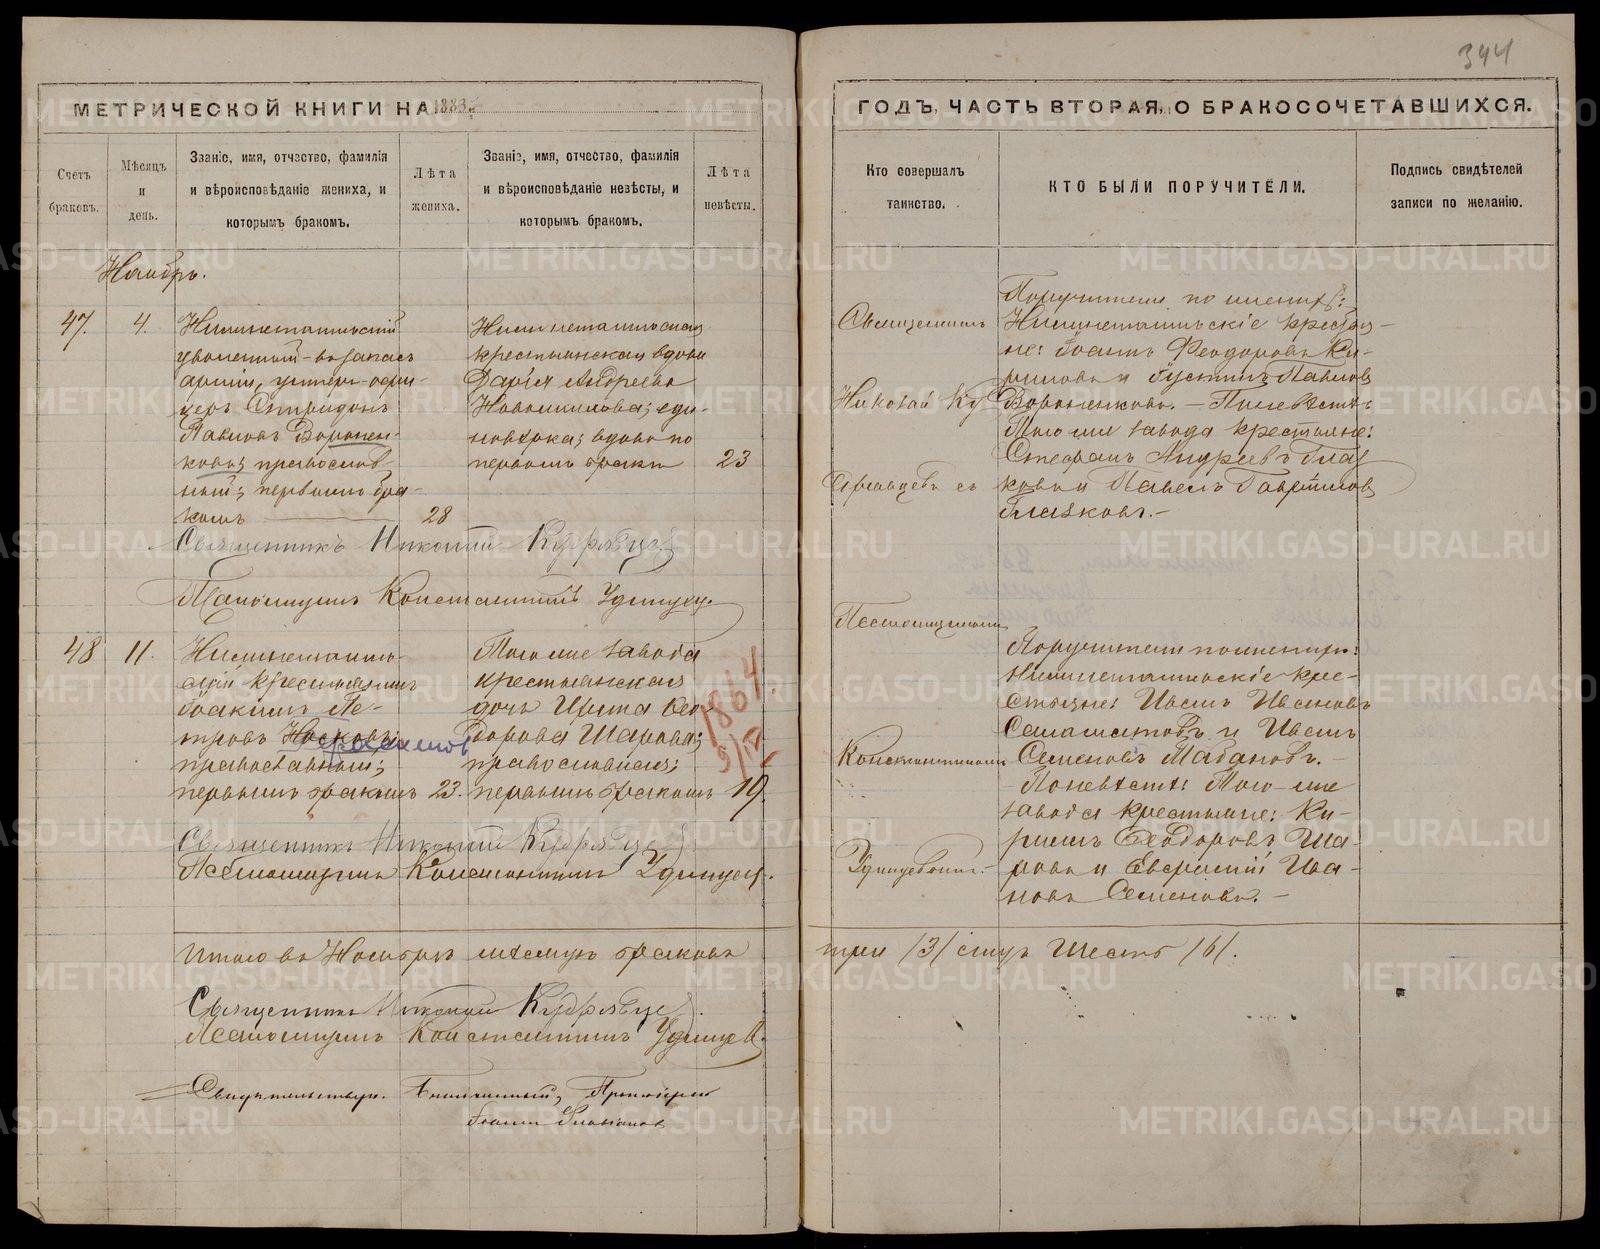 394
МЕТРИЧЕСКОЙ КНИГИ НА 1883
ГОДЪ, ЧАСТЬ ВТОРАЯ, О БРАКОСОЧЕТАВШИХСЯ.
Счетъ браковъ.
Мѣсяцъ и день.
Званіе, имя, отчество, фамилія
и вѣроисповѣданіе жениха, и
которымъ бракомъ.
Лѣта
жениха.
Званіе, имя, отчество, фамилія
и вѣроисповѣданіе невѣсты, и
которымъ бракомъ.
Лѣта
невѣсты.
Кто совершалъ
таинство.
КТО БЫЛИ ПОРУЧИТЕЛИ.
Подпись свидѣтелей
записи по желанію.
Ноябрь.
47.
4.
Нижнетагильскій
уволенный въ запасъ
арміи, унтеръ-офи-
церъ Спиридонъ
Павловъ Воронен-
ковъ; православ-
ный; первымъ бра-
комъ
28
Нижнетагильская
крестьянская вдова
Дарья Андреева
Новошилова; еди-
новѣрка; вдова по
первомъ бракѣ
23
Священникъ
Николай Ку
съ
Поручители по женихѣ:
Нижнетагильскіе крестья-
не: Іоаннъ Феодоровъ Ки-
риловъ и Іустинъ Павловъ
Вороненковъ. — По невѣстѣ:
Того же завода крестьяне:
Стефанъ Андреевъ Глаз
ковъ и Павелъ Гавриловъ
Глазковъ. —
Священникъ Николай Кудрявцевъ
Псаломщикъ Константинъ Удинцевъ.
48
11.
Нижнетагиль-
скій крестьянинъ
Іоакимъ Пе-
тровъ Носковъ;
Герасимовъ
православный;
первымъ бракомъ
23.
Того же завода
крестьянская
дочь Ирина Ѳео
дорова Шарова;
православная;
первымъ бракомъ
19.
1864.
5/IV
Псаломщикомъ
Константиномъ
Удинцевымъ.
Поручители по женихѣ:
Нижнетагильскіе кре-
стьяне: Иванъ Ивановъ
Саламатовъ и Иванъ
Семеновъ Мабановъ. —
По невѣстѣ: Того же
завода крестьяне: Ки-
риллъ Феодоровъ Ша-
ровъ и Евграфій Ива-
новъ Семеновъ. —
Священникъ Николай Кудрявцевъ
Псаломщикъ Константинъ Удинцевъ.
Итого въ Ноябрѣ мѣсяцѣ браковъ
три /3/ стр. Шесть /6/.
Священникъ Николай Кудрявцевъ
Псаломщикъ Константинъ Удинцевъ.
Свидѣтельствую. Благочинный, Протоіерей
Іоаннъ
METRIKI.GASO-URAL.RU